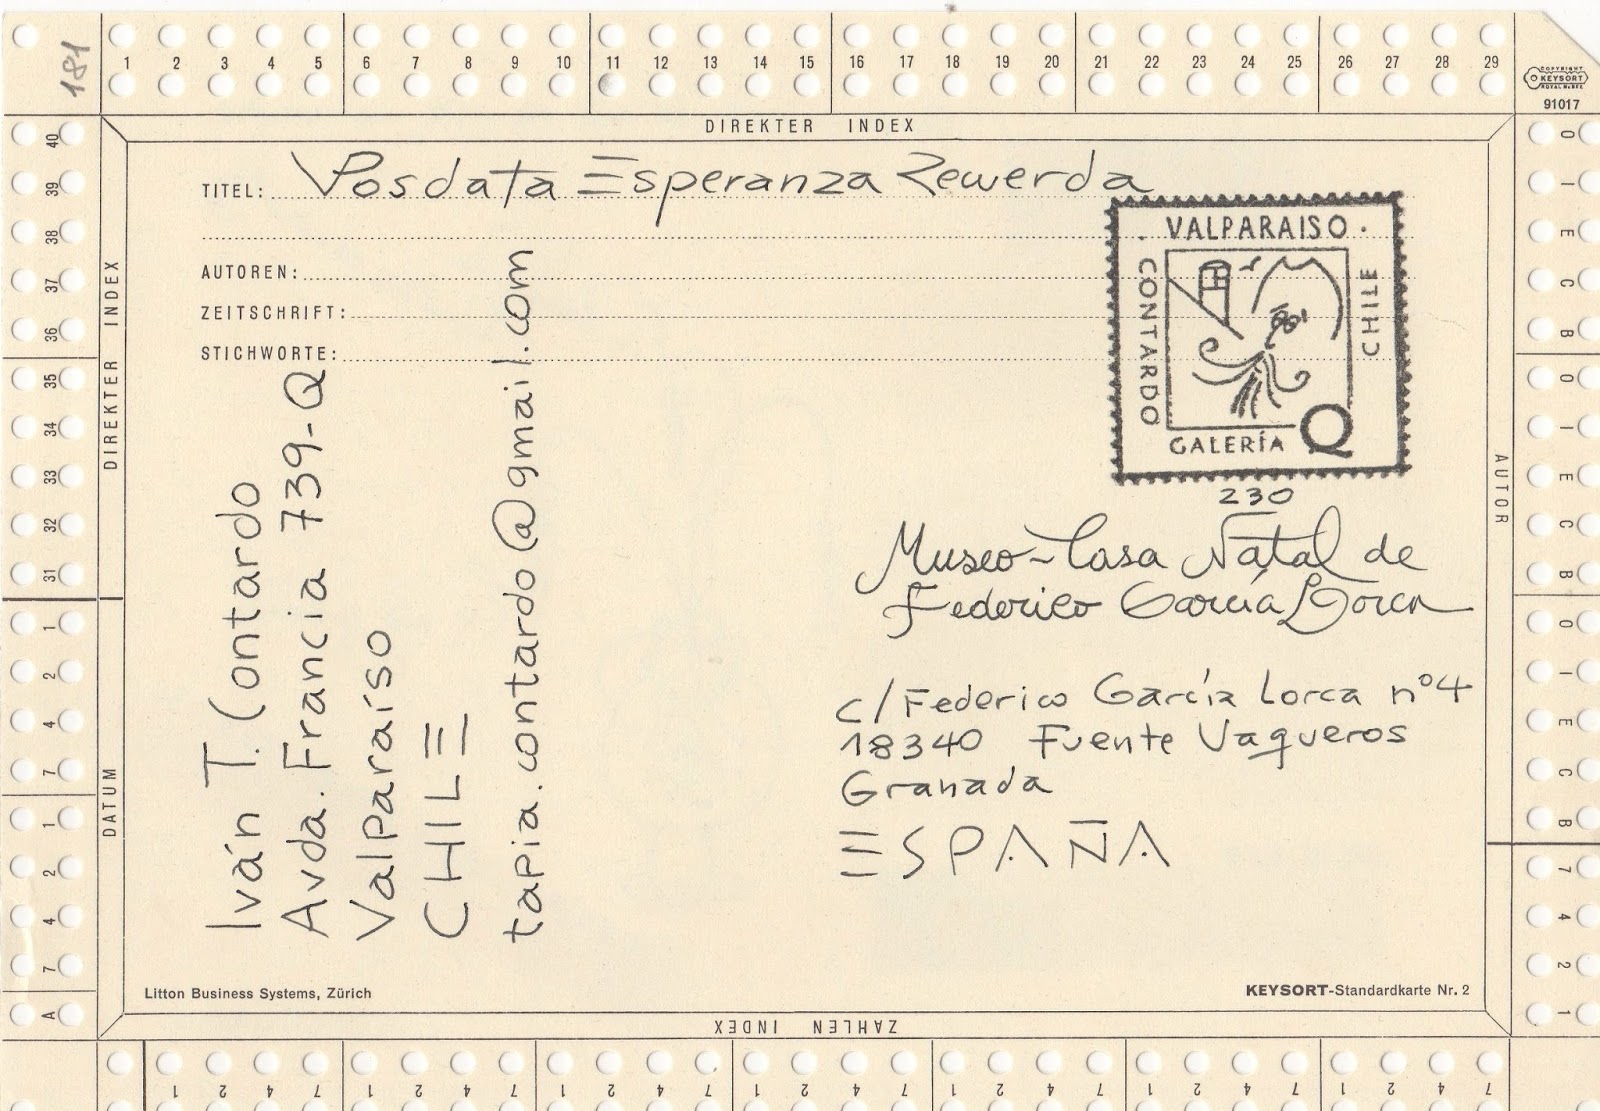 181
1 2 3 4 5 6 7 8 9 10 11 12 13 14 15 16 17 18 19 20 21 22 23 24 25 26 27 28 29
COPYRIGHT
KEYSORT
ROYAL McBEE
91017
DIREKTER INDEX
TITEL: Posdata Esperanza Rewerda
AUTOREN:
ZEITSCHRIFT:
STICHWORTE:
VALPARAISO
CONTARDO
CHILE
GALERÍA Q
230
Museo-Casa Natal de
Federico García Lorca
c/Federico García Lorca nº4
18340 Fuente Vaqueros
Granada
ESPAÑA
Iván T. Contardo
Avda. Francia 739-Q
Valparaíso
CHILE
tapia.contardo@gmail.com
40 39 38 37 36 35 34 33 32 31
1 2 4 7 1 2 4 7 A
DIREKTER INDEX DIREKTER INDEX
DATUM
AUTOR
O I E C B O I E C B O I E C B
7 4 2 1
Litton Business Systems, Zürich
KEYSORT-Standardkarte Nr. 2
ZAHLEN INDEX
1 2 4 7 1 2 4 7 1 2 4 7 1 2 4 7 1 2 4 7 1 2 4 7 1 2 4 7